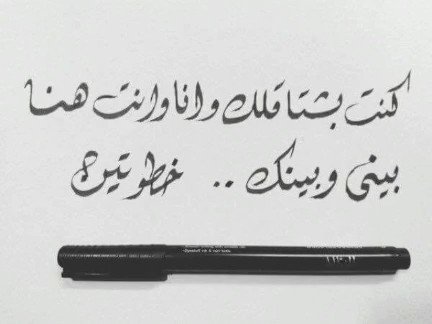 كنت بشتاقلك وانا وانت هنا
بيني وبينك .. خطوتين